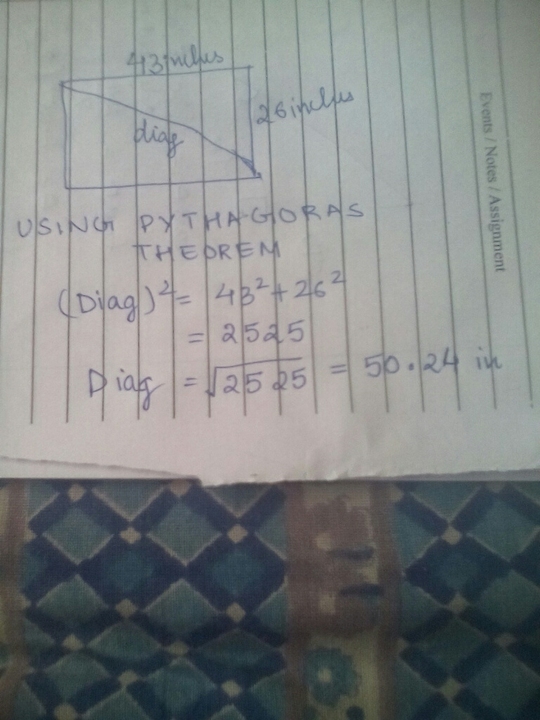 43 inches
26 inches
diag
Events / Notes / Assignment
USING PYTHAGORAS
THEOREM
(Diag)² = 43² + 26²
= 2525
Diag = √2525 = 50.24 in